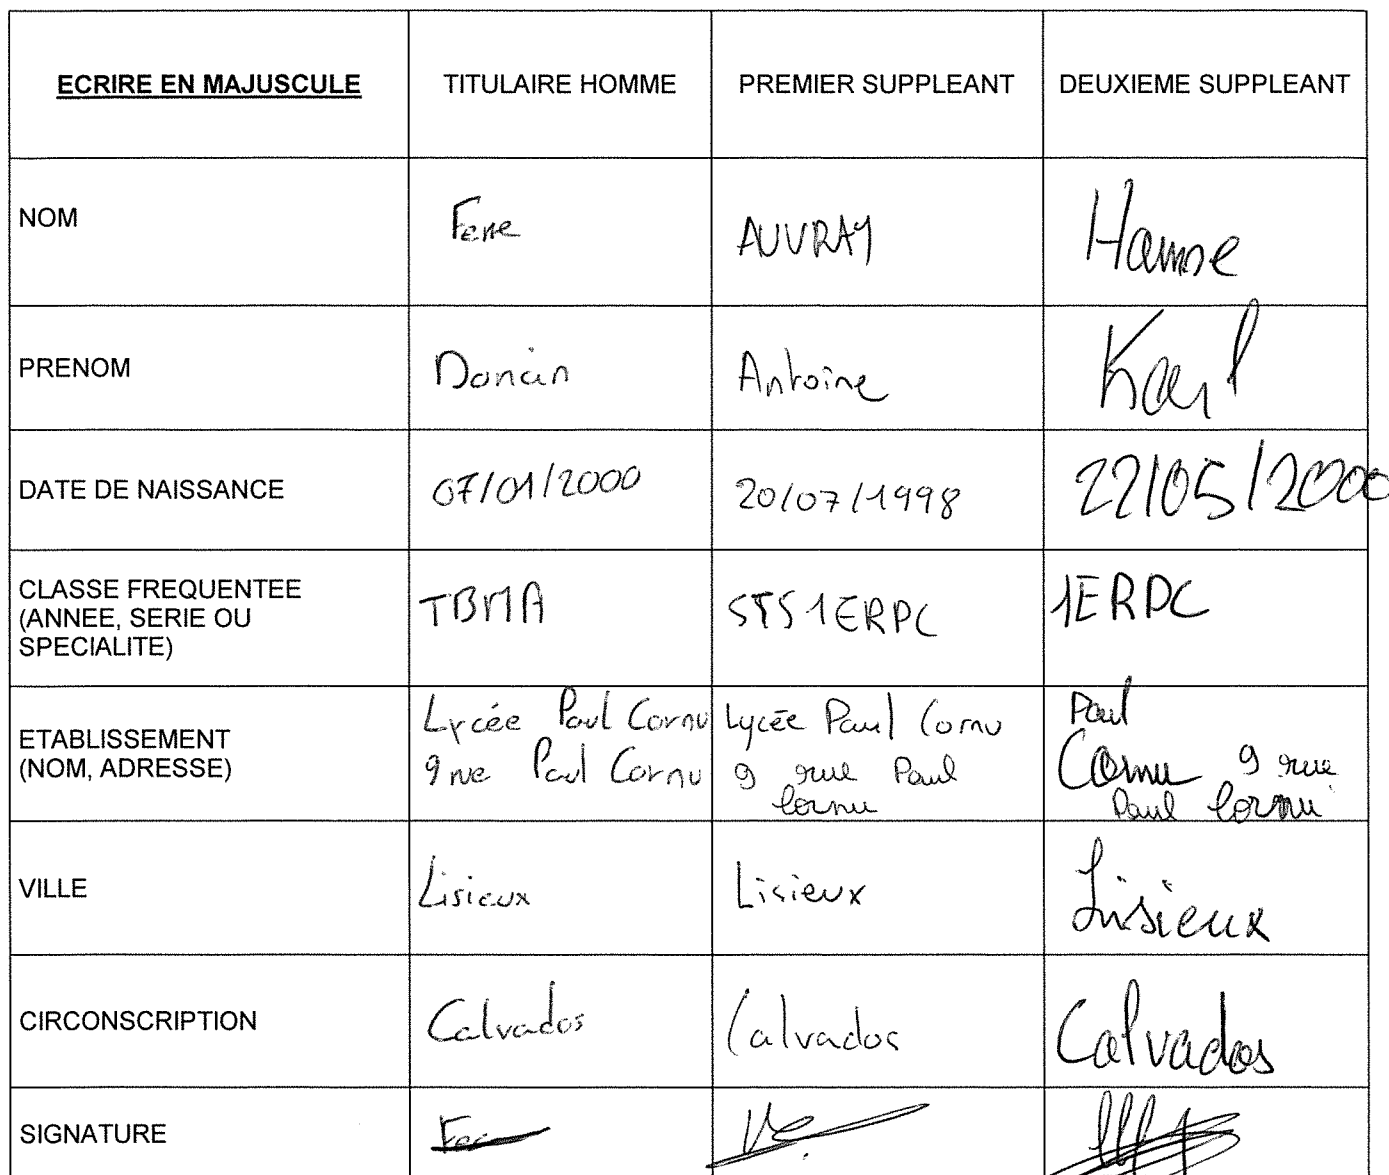 ECRIRE EN MAJUSCULE TITULAIRE HOMME PREMIER SUPPLEANT DEUXIEME SUPPLEANT
NOM AUVRAY
PRENOM Antoine Karl
DATE DE NAISSANCE 07/01/2000 20/07/1998 22/05/2000
CLASSE FREQUENTEE
(ANNEE, SERIE OU
SPECIALITE)
TBMA STS1ERPC 1ERPC
ETABLISSEMENT
(NOM, ADRESSE)
Lycée Paul Cornu
9 rue Paul Cornu
Lycée Paul Cornu
9 rue Paul
Cornu
Paul
Cornu 9 rue
Paul Cornu
VILLE Lisieux Lisieux Lisieux
CIRCONSCRIPTION Calvados Calvados Calvados
SIGNATURE